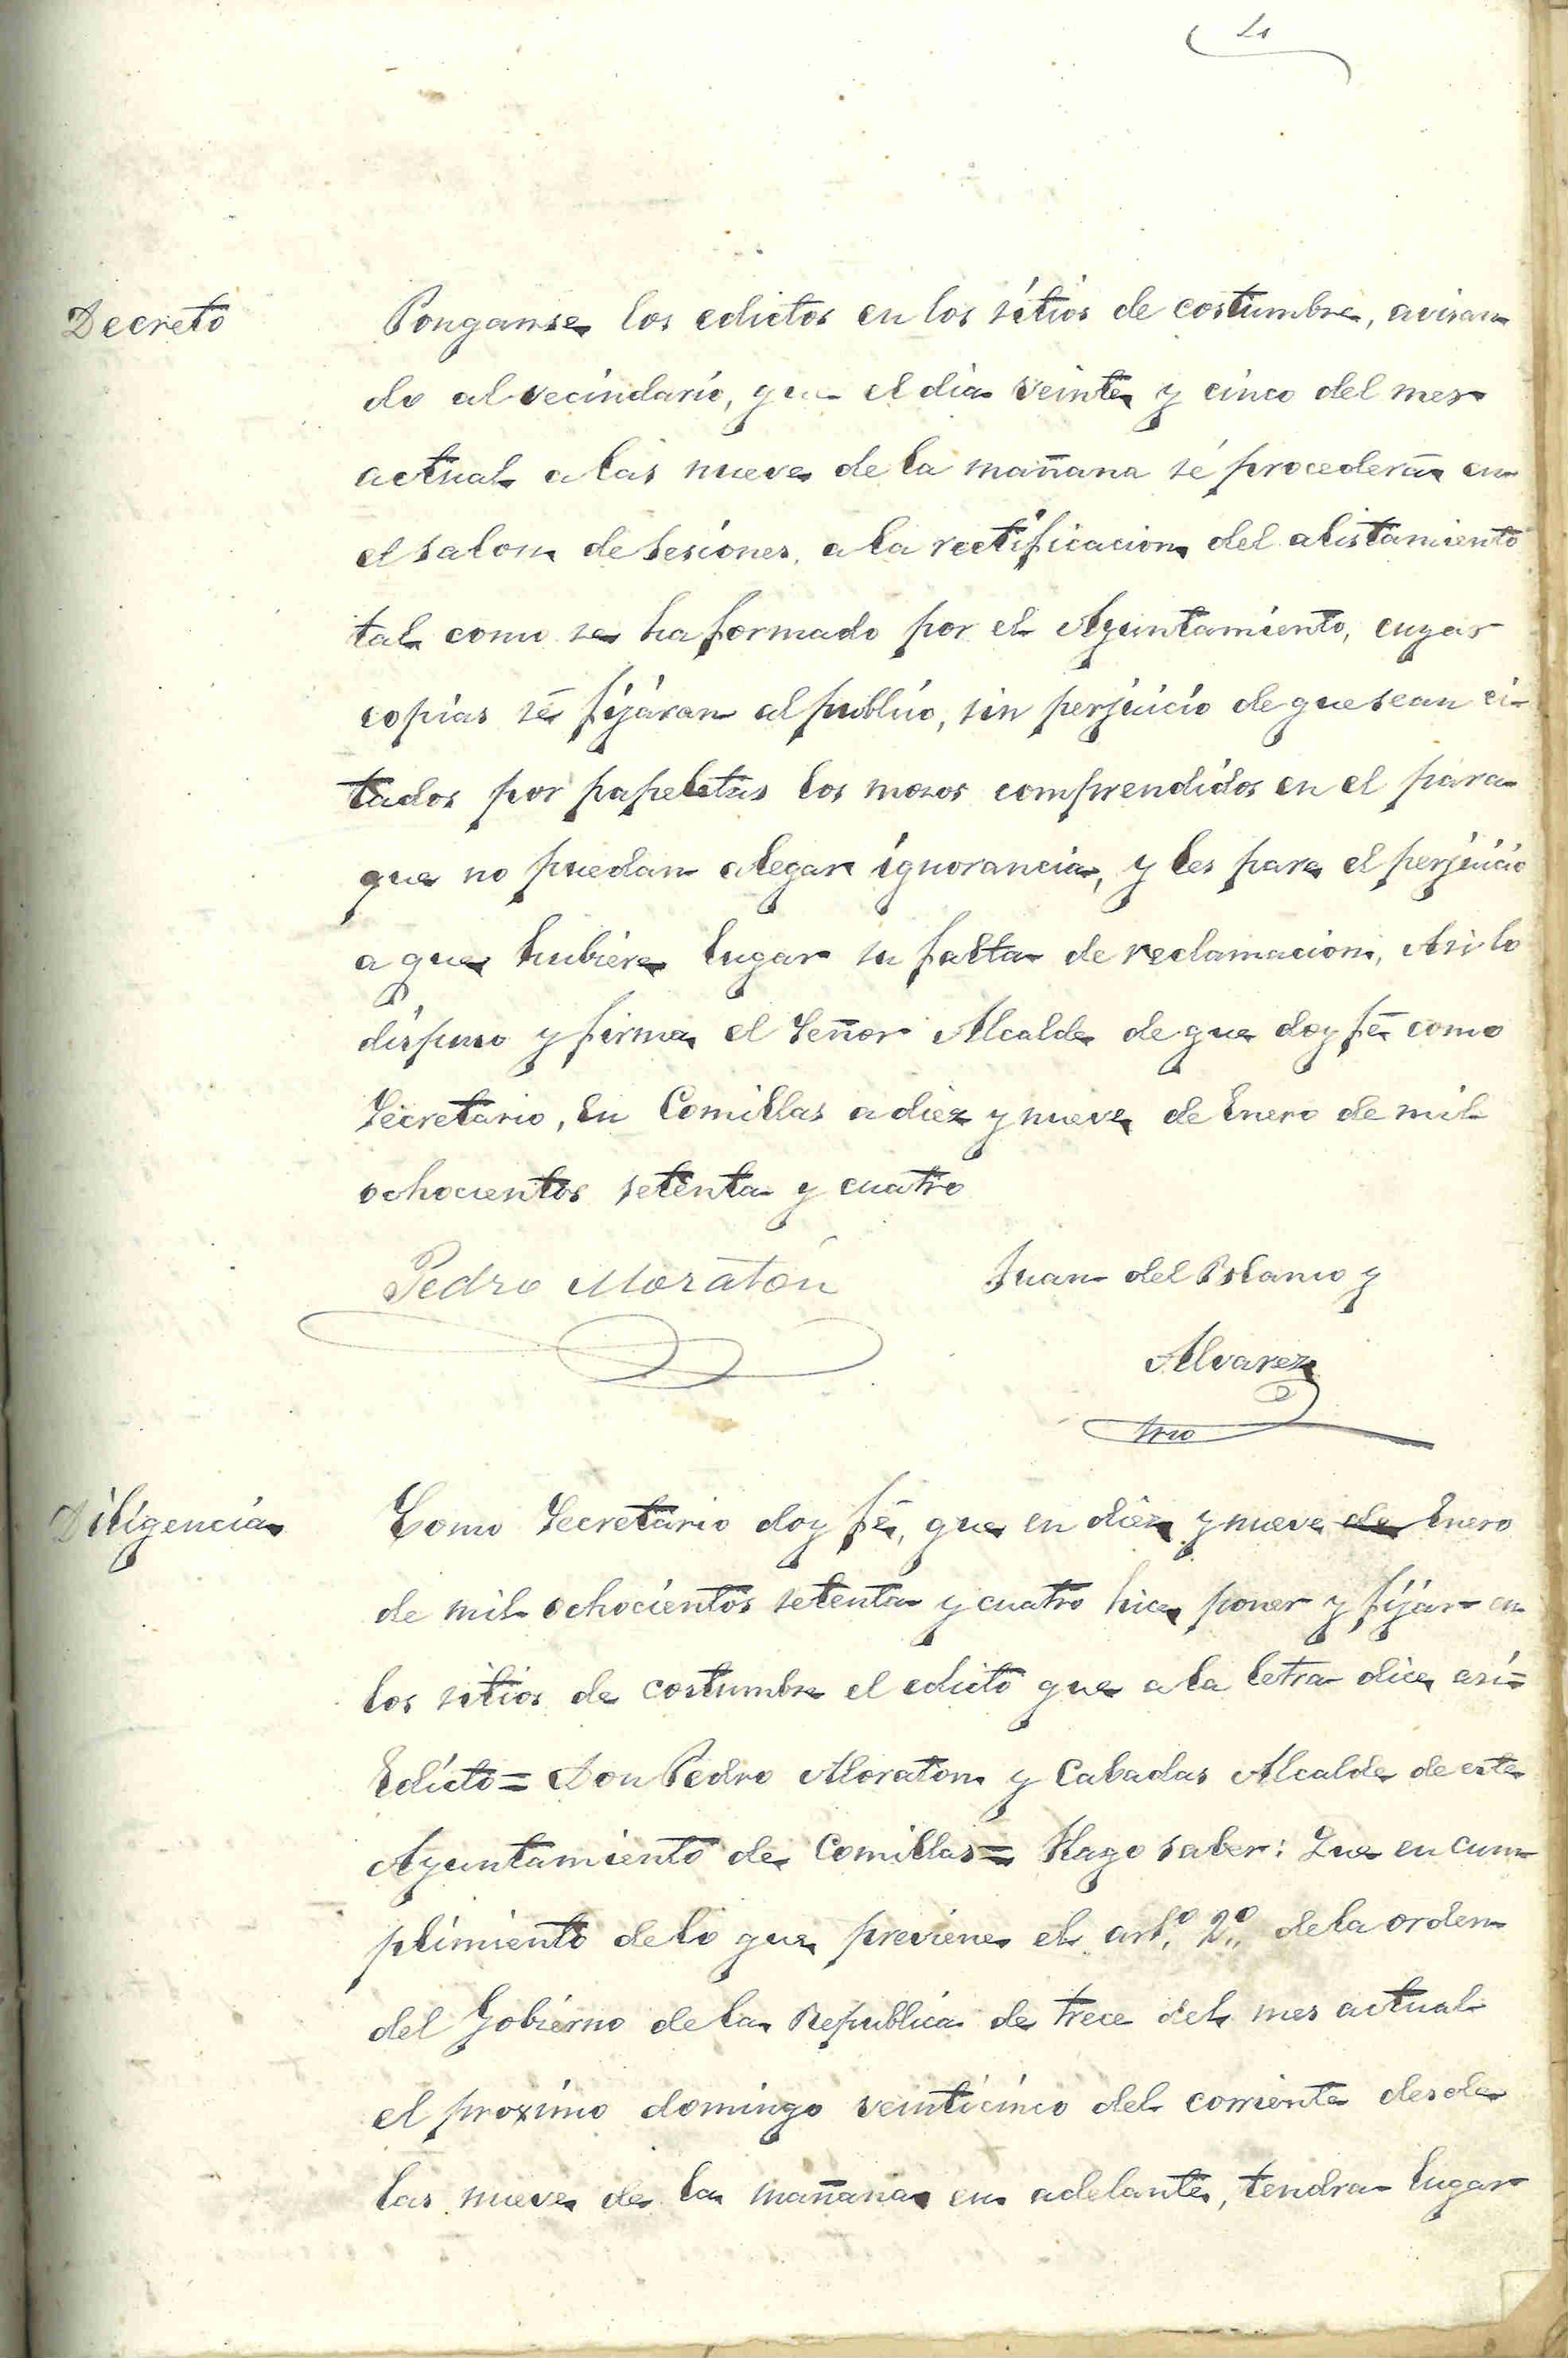 Decreto
Ponganse los edictos en los sitios de costumbre, avisan
do al vecindario, que el dia veinte y cinco del mes
actual a las nueve de la mañana se procederá en
el salon de sesiones, a la rectificacion del alistamiento
tal como se ha formado por el Ayuntamiento, cuyas
copias se fijaran al publico, sin perjuicio de que sean ci-
tados por papeletas los mozos comprendidos en el para
que no puedan alegar ignorancia, y les pare el perjuicio
a que hubiere lugar su falta de reclamacion, Asi lo
dispuso y firma el Señor Alcalde de que doy fé como
Secretario, En Comillas a diez y nueve de Enero de mil
ochocientos setenta y cuatro
Pedro Moratón
Juan del Blanco y
Alvarez
Srio
Diligencia
Como Secretario doy fé, que en diez y nueve de Enero
de mil ochocientos setenta y cuatro hice poner y fijar en
los sitios de costumbre el edicto que a la letra dice así=
Edicto= Don Pedro Moraton y Cabadas Alcalde de este
Ayuntamiento de Comillas= Hago saber: Que en cum
plimiento de lo que previene el artº 2º de la orden
del Gobierno de la Republica de trece del mes actual
el proximo domingo veinticinco del corriente desde
las nueve de la mañana en adelante, tendra lugar